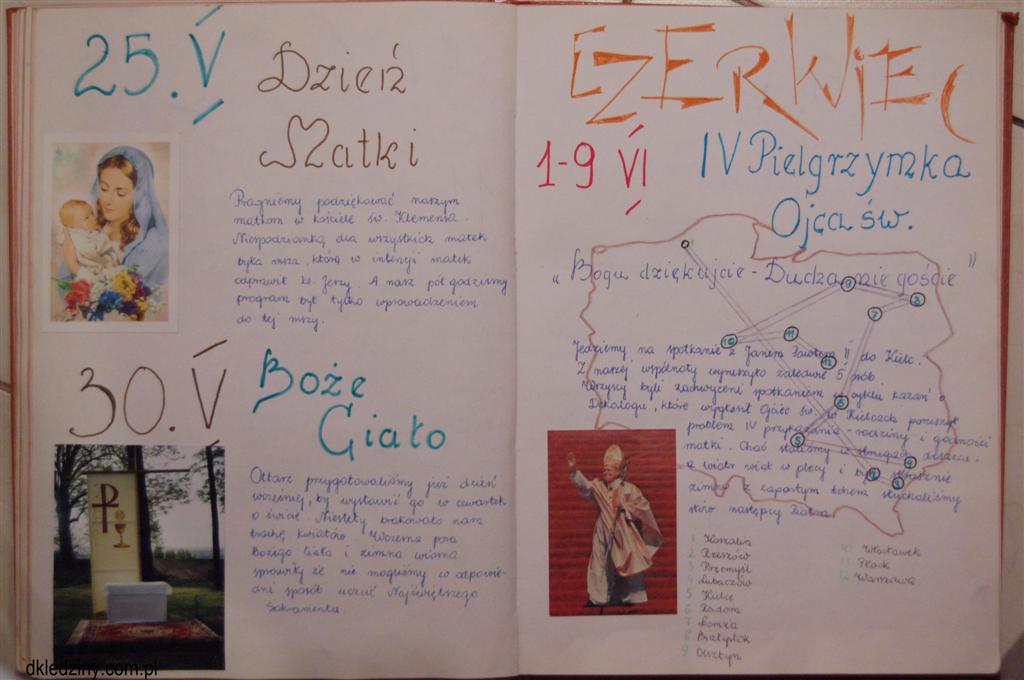 25.V Dzień
Matki
Pragniemy podziękować naszym
matkom w kościele św. Klemensa.
Niespodzianką dla wszystkich matek
była msza, którą w intencji matek
odprawił ks. Jerzy. A nasz pół godzinny
program był tylko wprowadzeniem
do tej mszy.
30.V Boże
Ciało
Ołtarz przygotowaliśmy już dzień
wcześniej, by wystawić go w czwartek
o świcie. Niestety brakowało nam
trochę kwiatów. Wczesna pora
Bożego Ciała i zimna wiosna
sprawiły że nie mogliśmy w odpowie-
dni sposób uczcić Najświętszego
Sakramentu.
CZERWIEC
1-9 VI IV Pielgrzymka
Ojca św.
"Bogu dziękujcie - Ducha nie gaście"
Jedziemy na spotkanie z Janem Pawłem II do Kielc.
Z naszej wspólnoty wyruszyło zaledwie 5 osób
Wszyscy byli zachwyceni spotkaniem w cyklu kazań o
Dekalogu, które wygłosił Ojciec św. w Kielcach poruszył
problem IV przykazania - rodziny i godności
matki. Choć staliśmy w strugach deszczu,
a wiatr wiał w plecy i było strasznie
zimno z zapartym tchem słuchaliśmy
słów następcy Piotra
1 Koszalin
2 Rzeszów
3 Przemyśl
4 Lubaczów
5 Kielce
6 Radom
7 Łomża
8 Białystok
9 Olsztyn
10 Włocławek
11 Płock
12 Warszawa
1
9
8
7
10
11
12
6
5
4
2
3
dkledziny.com.pl